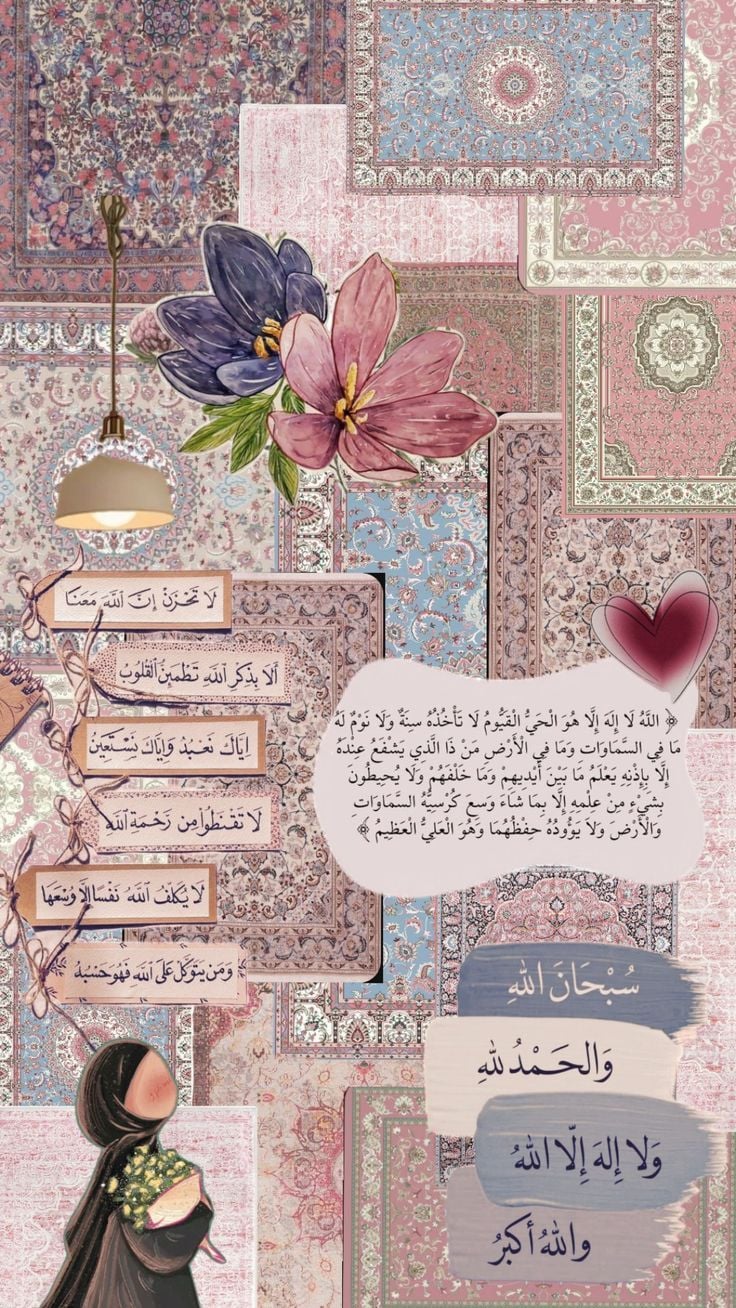 لَا تَحْزَنْ إِنَّ ٱللَّهَ مَعَنَا
أَلَا بِذِكْرِ ٱللَّهِ تَطْمَئِنُّ ٱلْقُلُوبُ
إِيَّاكَ نَعْبُدُ وَإِيَّاكَ نَسْتَعِينُ
لَا تَقْنَطُوا۟ مِن رَّحْمَةِ ٱللَّهِ
لَا يُكَلِّفُ ٱللَّهُ نَفْسًا إِلَّا وُسْعَهَا
وَمَن يَتَوَكَّلْ عَلَى ٱللَّهِ فَهُوَ حَسْبُهُ
﴿ اللَّهُ لَا إِلَهَ إِلَّا هُوَ الْحَيُّ الْقَيُّومُ لَا تَأْخُذُهُ سِنَةٌ وَلَا نَوْمٌ لَهُ
مَا فِي السَّمَاوَاتِ وَمَا فِي الْأَرْضِ مَنْ ذَا الَّذِي يَشْفَعُ عِنْدَهُ
إِلَّا بِإِذْنِهِ يَعْلَمُ مَا بَيْنَ أَيْدِيهِمْ وَمَا خَلْفَهُمْ وَلَا يُحِيطُونَ
بِشَيْءٍ مِنْ عِلْمِهِ إِلَّا بِمَا شَاءَ وَسِعَ كُرْسِيُّهُ السَّمَاوَاتِ
وَالْأَرْضَ وَلَا يَؤُودُهُ حِفْظُهُمَا وَهُوَ الْعَلِيُّ الْعَظِيمُ ﴾
سُبْحَانَ اللهِ
وَالحَمْدُ للهِ
وَلا إِلهَ إِلّا اللهُ
واللهُ أَكبرُ